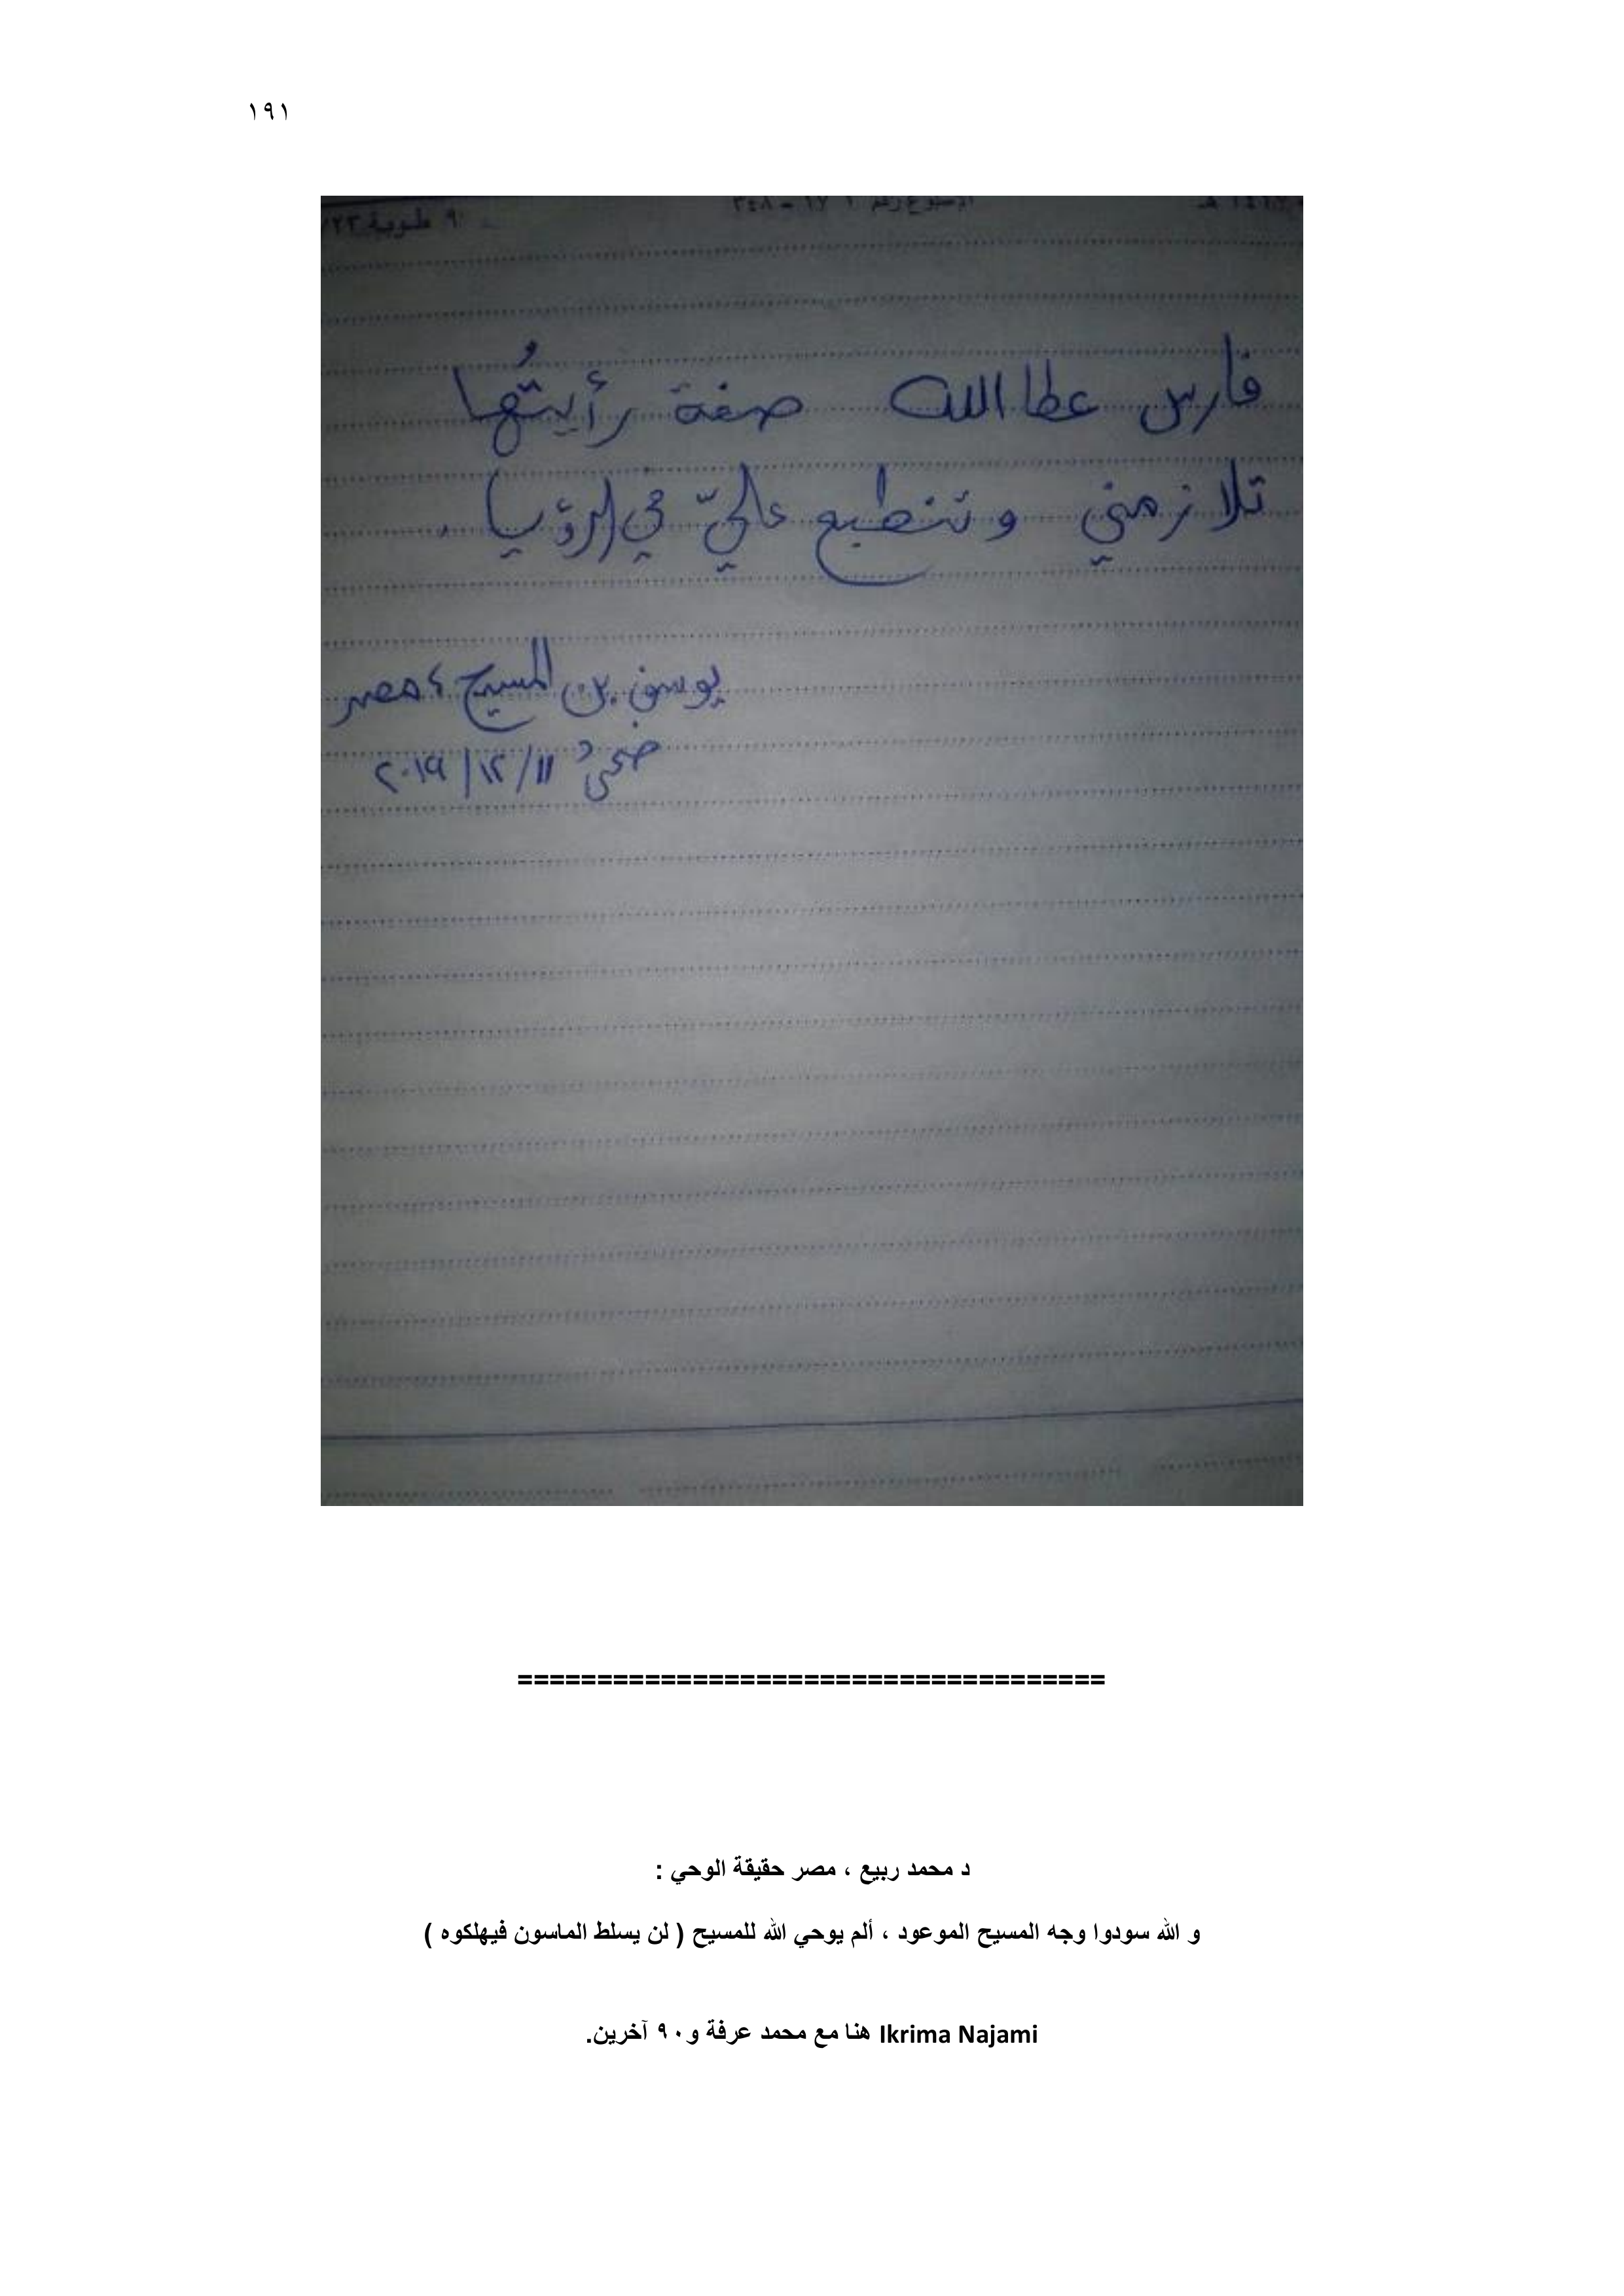 ١٩١
٩ طوبة
فارس عطا الله صفة رأيتُها
تلازمني وتنطبع عليّ في الرؤيا .
يوسف بن المسيح ، مصر
ضحىً ١١/ ١٢/ ٢٠١٩
=====================================
د محمد ربيع ، مصر حقيقة الوحي :
و الله سودوا وجه المسيح الموعود ، ألم يوحي الله للمسيح ( لن يسلط الماسون فيهلكوه )
Ikrima Najami هنا مع محمد عرفة و٩٠ آخرين.